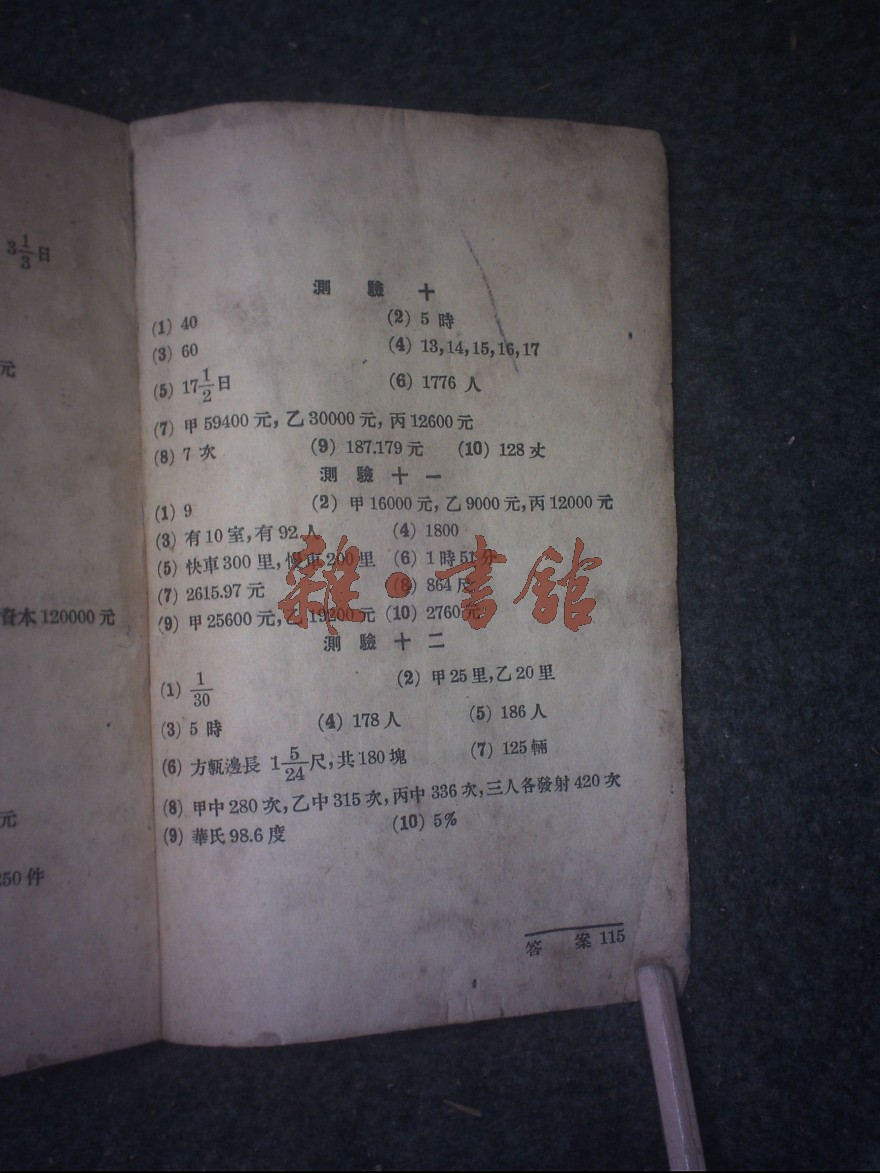 3 1/3 日
元
資本 120000 元
元
250 件
測 驗 十
(1) 40 (2) 5 時
(3) 60 (4) 13,14,15,16,17
(5) 17 1/2 日 (6) 1776 人
(7) 甲 59400 元, 乙 30000 元, 丙 12600 元
(8) 7 次 (9) 187.179 元 (10) 128 丈
測 驗 十 一
(1) 9 (2) 甲 16000 元, 乙 9000 元, 丙 12000 元
(3) 有 10 室, 有 92 人 (4) 1800
(5) 快車 300 里, 慢車 200 里 (6) 1 時 51 分
(7) 2615.97 元 (8) 864 尺
(9) 甲 25600 元, 乙 19200 元 (10) 2760 元
測 驗 十 二
(1) 1/30 (2) 甲 25 里, 乙 20 里
(3) 5 時 (4) 178 人 (5) 186 人
(6) 方甎邊長 1 5/24 尺, 共 180 塊 (7) 125 輛
(8) 甲中 280 次, 乙中 315 次, 丙中 336 次, 三人各發射 420 次
(9) 華氏 98.6 度 (10) 5%
答 案 115
雜·書館